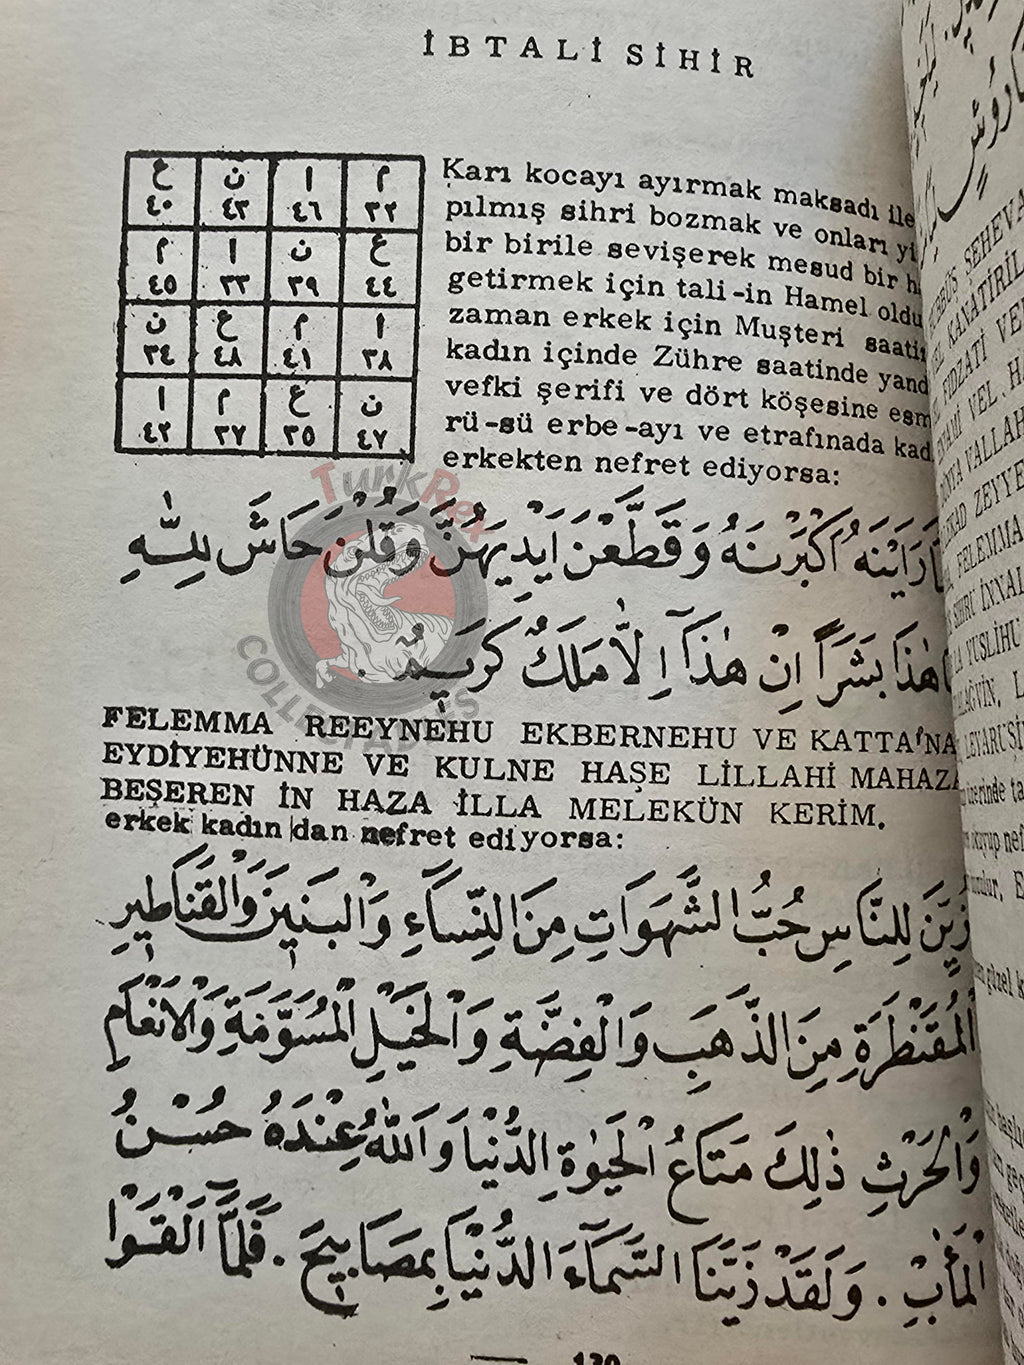 İBTALİ SİHİR
ع ن ا م
٤٠ ٤٣ ٤٦ ٣٢
م ا ن ع
٤٥ ٣٣ ٣٩ ٤٤
ن ع م ا
٣٤ ٤٨ ٤١ ٣٨
ا م ع ن
٤٢ ٣٧ ٣٥ ٤٧
Karı kocayı ayırmak maksadı ile
pılmış sihri bozmak ve onları yi
bir birile sevişerek mesud bir h
getirmek için tali-in Hamel oldu
zaman erkek için Muşteri saati
kadın içinde Zühre saatinde yand
vefki şerifi ve dört köşesine esm
rü-sü erbe-ayı ve etrafınada kad
erkekten nefret ediyorsa:
رَاَيْنَهُ اَكْبَرْنَهُ وَقَطَّعْنَ اَيْدِيَهُنَّ وَقُلْنَ حَاشَ لِلّٰهِ
هٰذَا بَشَرًا اِنْ هٰذَآ اِلَّا مَلَكٌ كَرِيمٌ .
FELEMMA REEYNEHU EKBERNEHU VE KATTA'NA
EYDİYEHÜNNE VE KULNE HAŞE LİLLAHİ MAHAZA
BEŞEREN İN HAZA İLLA MELEKÜN KERİM.
erkek kadın dan nefret ediyorsa:
زُيِّنَ لِلنَّاسِ حُبُّ الشَّهَوَاتِ مِنَ النِّسَآءِ وَالْبَنِينَ وَالْقَنَاطِيرِ
الْمُقَنْطَرَةِ مِنَ الذَّهَبِ وَالْفِضَّةِ وَالْخَيْلِ الْمُسَوَّمَةِ وَالْاَنْعَامِ
وَالْحَرْثِ ذٰلِكَ مَتَاعُ الْحَيٰوةِ الدُّنْيَا وَاللّٰهُ عِنْدَهُ حُسْنُ
الْمَاٰبِ . وَلَقَدْ زَيَّنَّا السَّمَآءَ الدُّنْيَا بِمَصَابِيحَ . فَلَمَّآ اَلْقَوْا
TurkRex
COLLECTABLES